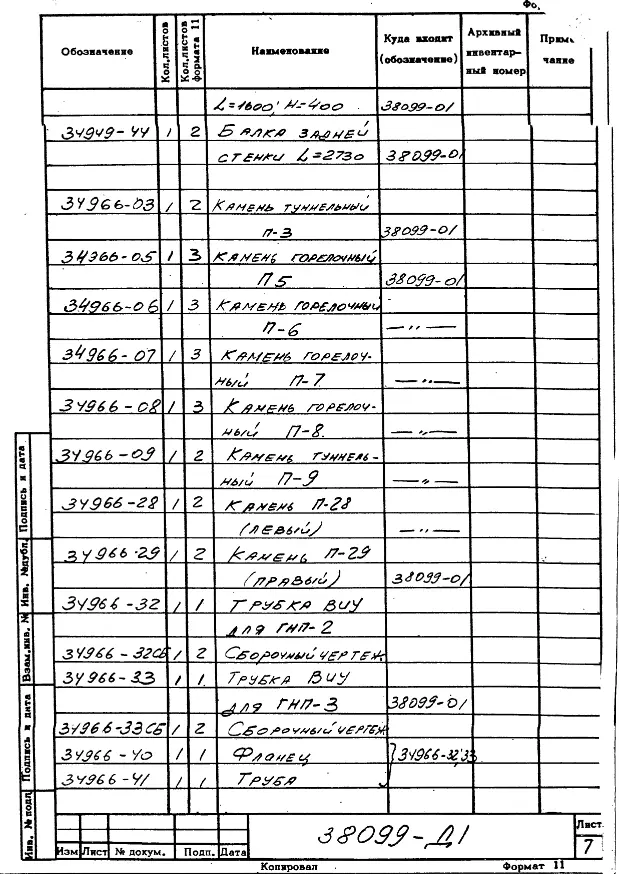 Фо.
Обозначение Кол.листов Кол.листов формата 11 Наименование Куда входит (обозначение) Архивный инвентарный номер Приме чание
L=1600; H=400 38099-01
34949-44 1 2 БАЛКА ЗАДНЕЙ
СТЕНКИ L=2730 38099-01
34966-03 1 2 КАМЕНЬ ТУННЕЛЬНЫЙ
П-3 38099-01
34966-05 1 3 КАМЕНЬ ГОРЕЛОЧНЫЙ
П5 38099-01
34966-06 1 3 КАМЕНЬ ГОРЕЛОЧНЫЙ
П-6 —"—
34966-07 1 3 КАМЕНЬ ГОРЕЛОЧ-
НЫЙ П-7 —"—
34966-08 1 3 КАМЕНЬ ГОРЕЛОЧ-
НЫЙ П-8. —"—
34966-09 1 2 КАМЕНЬ ТУННЕЛЬ-
НЫЙ П-9 —"—
34966-28 1 2 КАМЕНЬ П-28
(ЛЕВЫЙ) —"—
34966-29 1 2 КАМЕНЬ П-29
(ПРАВЫЙ) 38099-01
34966-32 1 1 ТРУБКА ВИУ
ДЛЯ ГНП-2
34966-32СБ 1 2 СБОРОЧНЫЙ ЧЕРТЕЖ
34966-33 1 1. ТРУБКА ВИУ
ДЛЯ ГНП-3 38099-01
34966-33СБ 1 2 СБОРОЧНЫЙ ЧЕРТЕЖ
34966-40 1 1 ФЛАНЕЦ } 34966-32,33
34966-41 1 1 ТРУБА
Инв. № подл. Подпись и дата Взам.инв. № Инв. №дубл. Подпись и дата
38099-Д1
Лист
7
Изм Лист № докум. Подп. Дата
Копировал Формат 11